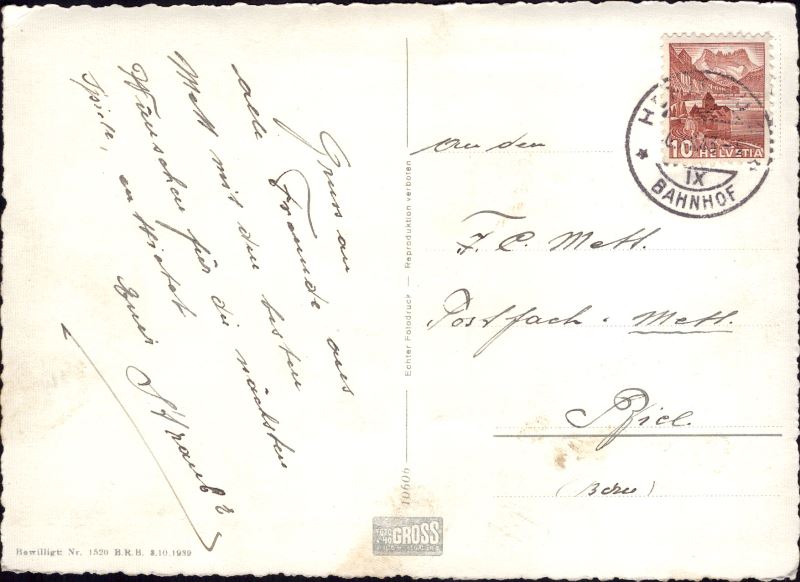 Gruss an
alle Freunde aus
Mett mit den besten
Wünschen für die nächsten
Spiele, entbietet
Euer Straub
an den
F. C. Mett.
Postfach. Mett.
Biel.
(Bern)
10 HELVETIA
IX
BAHNHOF
Echter Fotodruck — Reproduktion verboten
10606
GROSS
Bewilligt Nr. 1520 B.R.B. 3.10.1939